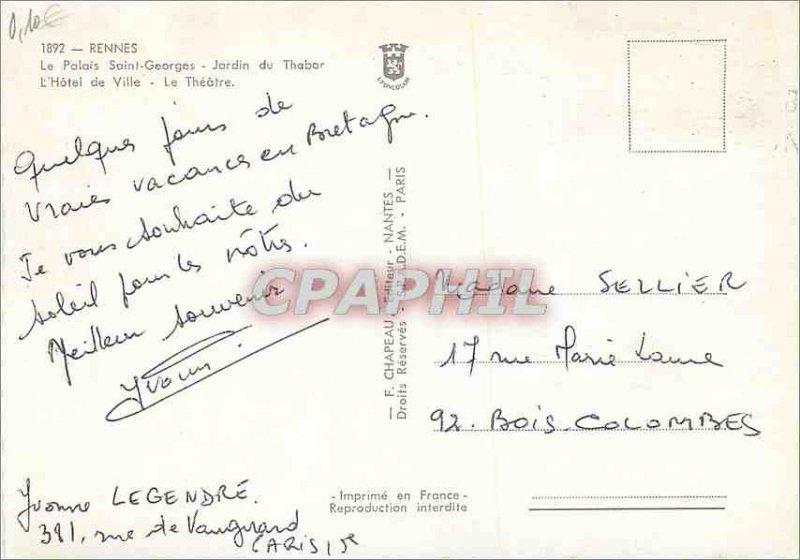 0,10€
1892 — RENNES
Le Palais Saint-Georges - Jardin du Thabor
L'Hôtel de Ville - Le Théâtre.
SPENCOLOR
Quelques jours de
vraies vacances en Bretagne.
Je vous souhaite du
soleil pour les vôtres.
Meilleur souvenir
Yvonne
Yvonne LEGENDRE.
381, rue de Vaugirard
PARIS 15e
— F. CHAPEAU - Editeur - NANTES —
Droits Réservés - S.P.A.D.E.M. - PARIS
CPAPHIL
Madame SELLIER
17 rue Marie Laure
92. BOIS-COLOMBES
- Imprimé en France -
Reproduction interdite